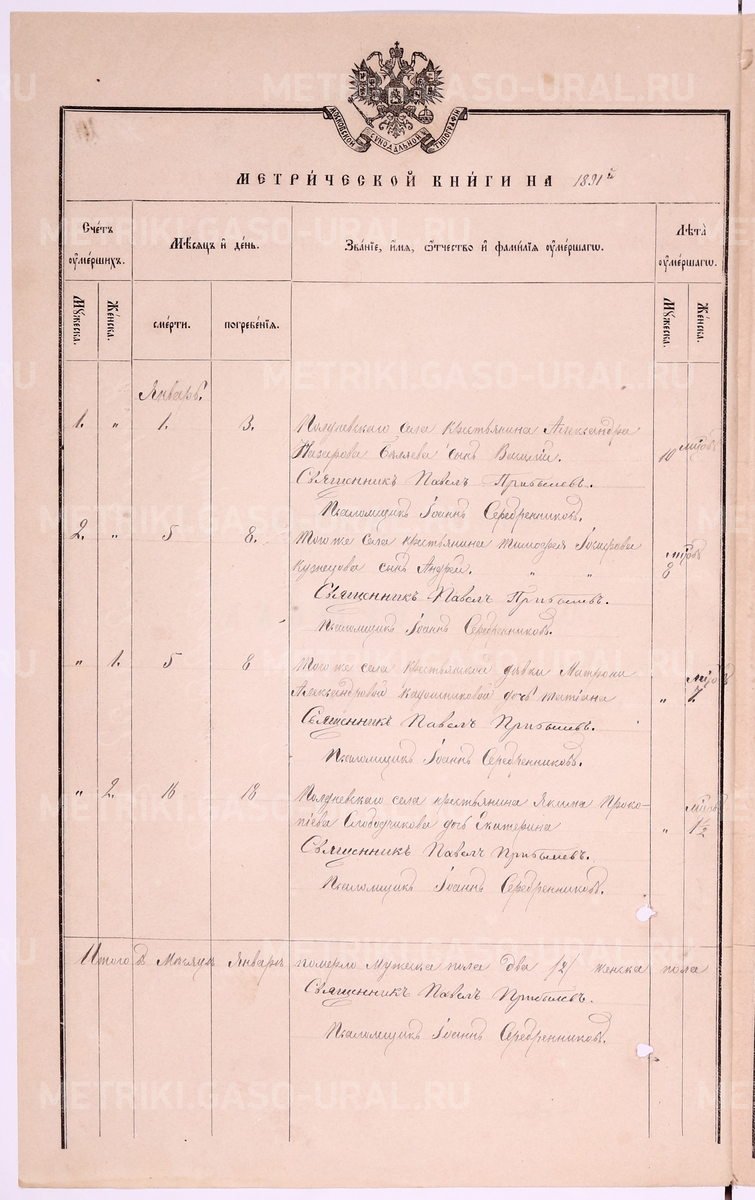 МОСКОВСКОЙ СѴНОДАЛЬНОЙ ТИПОГРАФІИ
МЕТРИ́ЧЕСКОЙ КНИ́ГИ НА 1891й
Сче́тъ оумéршихъ.
Мѣ́сяцъ и҆ де́нь.
Зва́нїе, и҆́мя, ѻ҆́тчество и҆ фами́лїя оумéршагѡ.
Лѣ́та оумéршагѡ.
Мꙋ́жеска.
Же́нска.
сме́рти.
погребе́нїя.
Мꙋ́жеска.
Же́нска.
Январь.
1. " 1. 3. Полдневскаго села крестьянина Александра
Назарова Беляева сынъ Василій. 10 мѣсяц.
Священникъ Павелъ Прибылевъ.
Псаломщикъ Іоаннъ Серебренниковъ.
2. " 5 8. Того же села крестьянина Тимофея
Кузнецова сынъ Андрей. " " 8
Священникъ Павелъ Прибылевъ.
Псаломщикъ Іоаннъ Серебренниковъ.
" 1. 5 8 Того же села крестьянской дѣвки Матроны
Александровой дочь Татіана " 2
Священникъ Павелъ Прибылевъ.
Псаломщикъ Іоаннъ Серебренниковъ.
" 2. 16 18 Полдневскаго села крестьянина Якима Проко-
піева Слободчикова дочь Екатерина " 1½
Священникъ Павелъ Прибылевъ.
Псаломщикъ Іоаннъ Серебренниковъ.
Итого въ Мѣсяцѣ Январѣ померло Мужеска пола два /2/ женска пола
Священникъ Павелъ Прибылевъ.
Псаломщикъ Іоаннъ Серебренниковъ.
METRIKI.GASO-URAL.RU